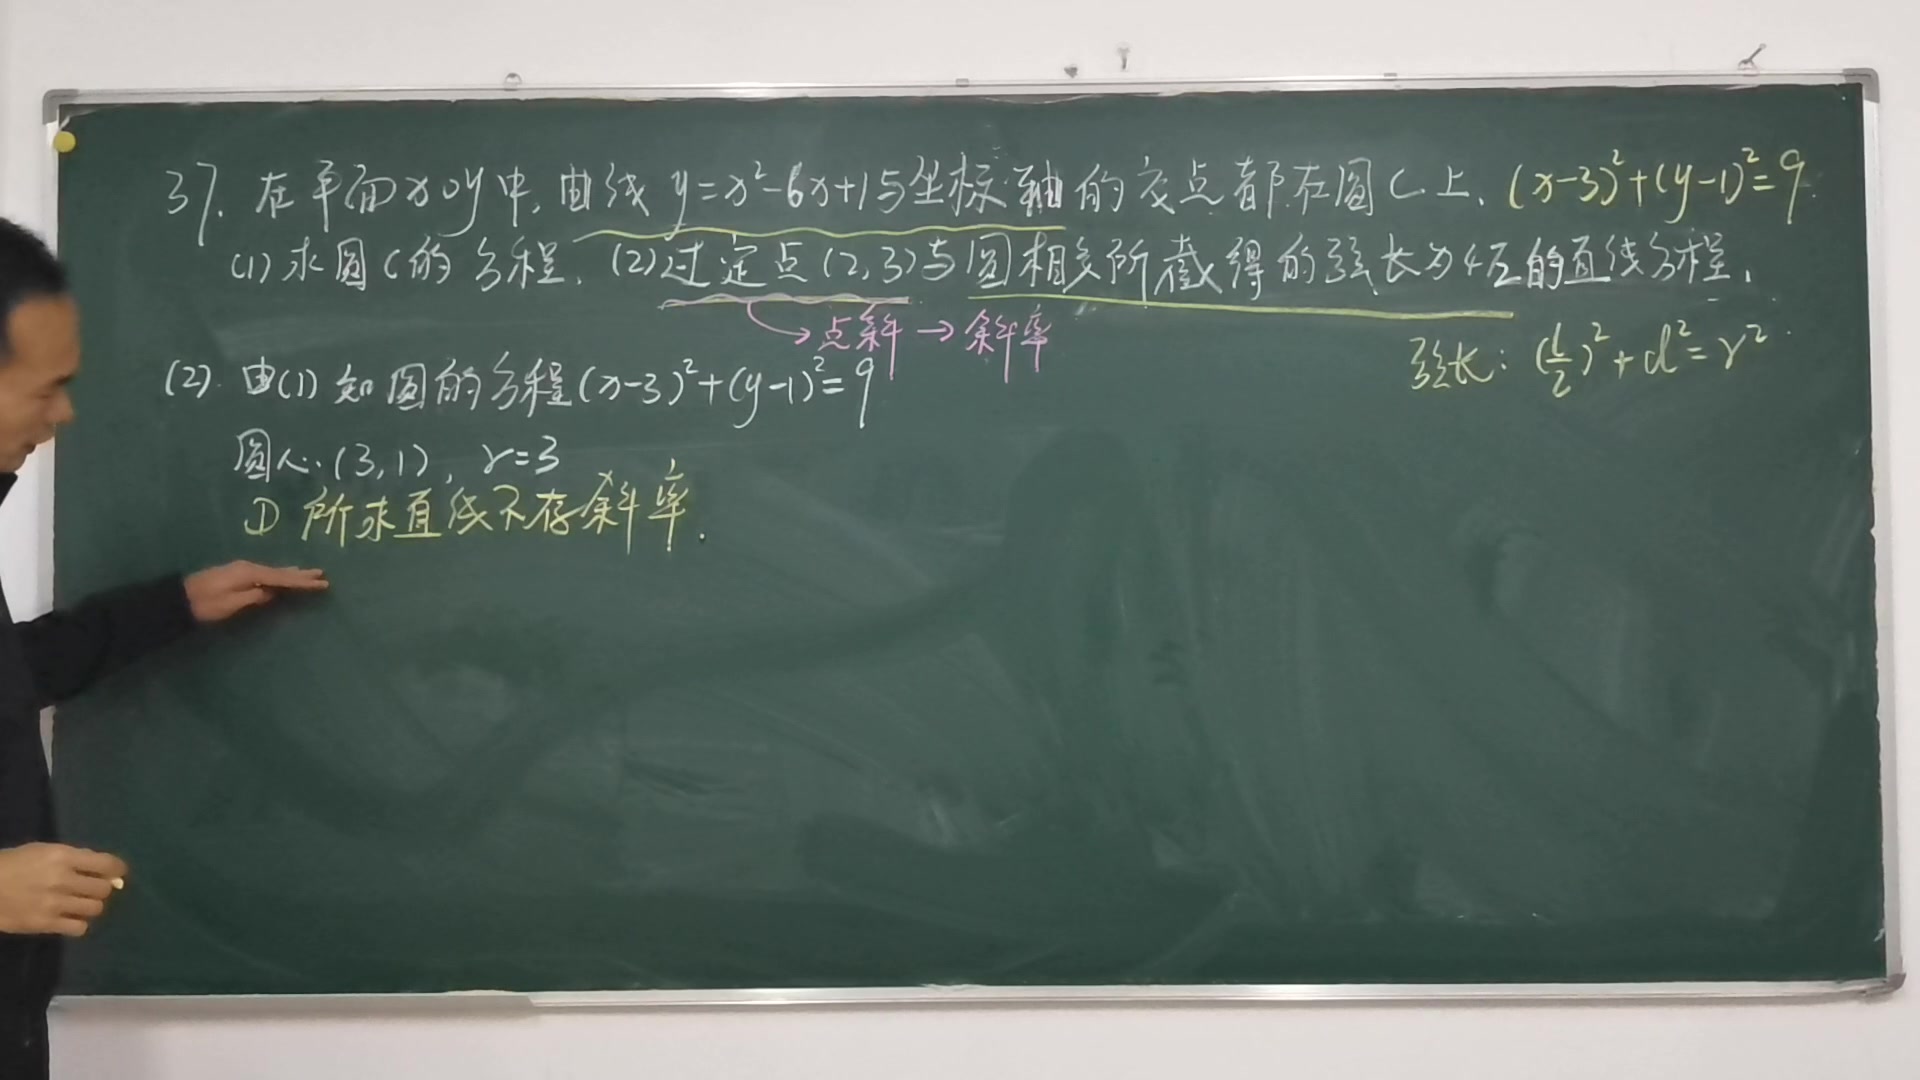 37. 在平面xoy中,曲线 y=x²-6x+1与坐标轴的交点都在圆C上. (x-3)²+(y-1)²=9
(1)求圆C的方程. (2)过定点(2,3)与圆相交所截得的弦长为4√2的直线方程.
点斜→斜率
弦长: (l/2)²+d²=r²
(2). 由(1)知圆的方程(x-3)²+(y-1)²=9
圆心(3,1), r=3
① 所求直线不存斜率.